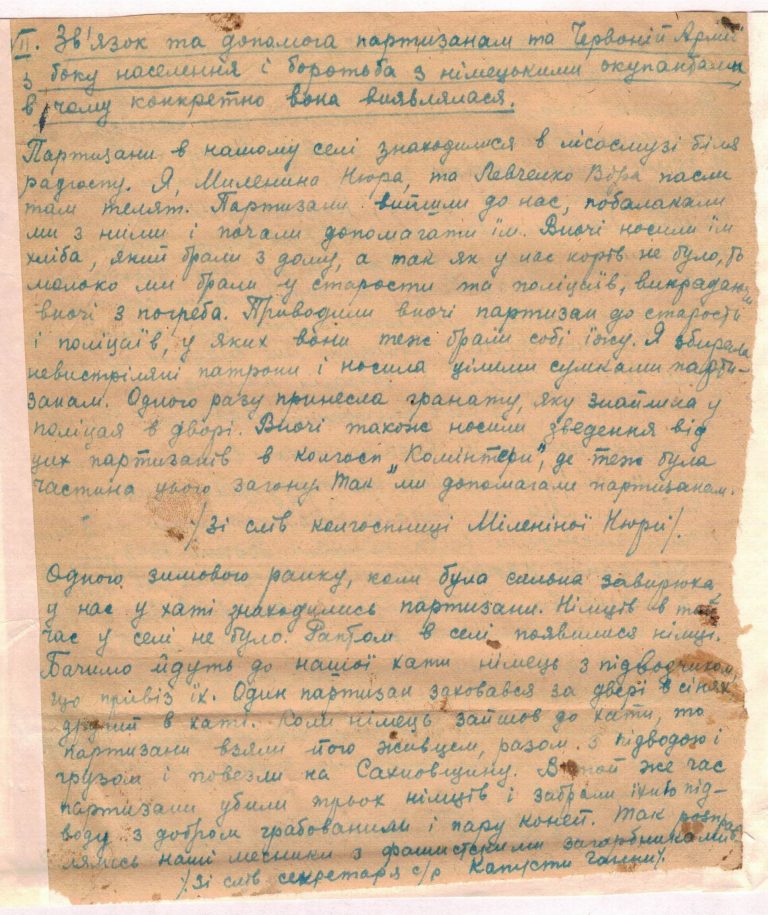 VII. Зв'язок та допомога партизанам та Червоній Армії
з боку населення і боротьба з німецькими окупантами,
в чому конкретно вона виявлялася.
Партизани в нашому селі знаходилися в лісосмузі біля
радгоспу. Я, Миленина Нюра, та Левченко Віра пасли
там телят. Партизани вийшли до нас, побалакали
ми з ними і почали допомагати їм. Вночі носили їм
хліба, який брали з дому, а так як у нас корів не було, то
молоко ми брали у старости та поліцаїв, викрадаючи
вночі з погреба. Приводили вночі партизан до старости
і поліцаїв, у яких вони теж брали собі їжу. Я збирала
невистріляні патрони і носила цілими сумками парти-
занам. Одного разу принесла гранату, яку знайшла у
поліцая в дворі. Вночі також носили зведення від
цих партизанів в колгосп „Комінтерн", де теж була
частина цього загону. Так ми допомагали партизанам.
/Зі слів колгоспниці Міленіної Нюри/.
Одного зимового ранку, коли була сильна завирюха,
у нас у хаті знаходились партизани. Німців в той
час у селі не було. Раптом в селі появилися німці.
Бачимо йдуть до нашої хати німець з підводчиком,
що привіз їх. Один партизан заховався за двері в сінях,
другий в хаті. Коли німець зайшов до хати, то
партизани взяли його живцем, разом з підводою і
грузом і повезли на Сахновщину. В той же час
партизани убили трьох німців і забрали їхню під-
воду з добром грабованим і пару коней. Так розправ
лялись наші месники з фашистськими загарбниками
/Зі слів секретаря с/р Капусти Ганни/.